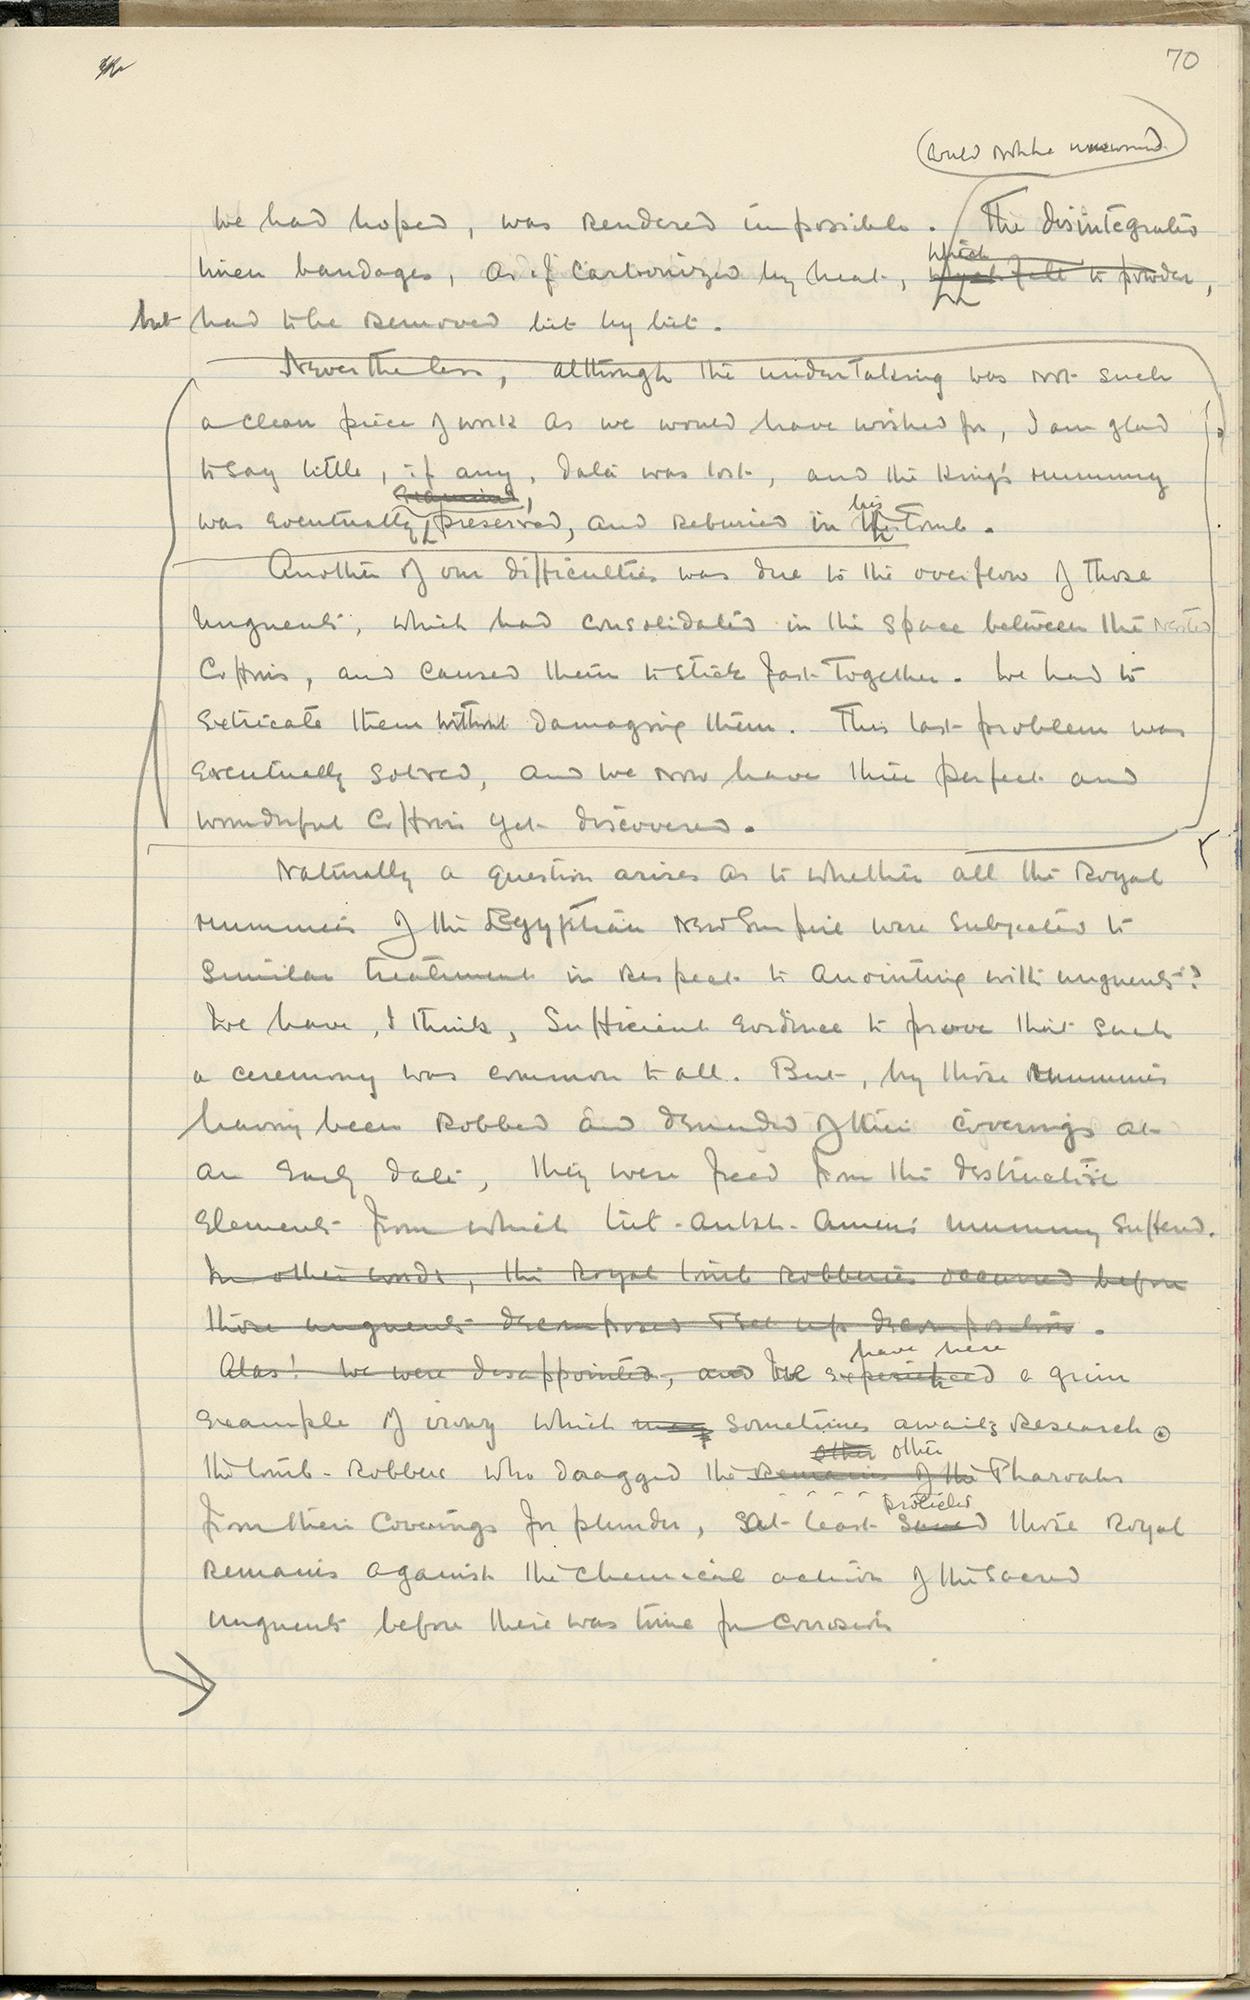 70
could not be unwound
we had hoped, was rendered impossible. The disintegrated
which
linen bandages, as if carbonized by heat, which fell to powder,
but had to be removed bit by bit.
Nevertheless, although the undertaking was not such
a clean piece of work as we would have wished for, I am glad
to say little, if any, data was lost, and the King's mummy
examined, his
was eventually preserved, and reburied in the Tomb.
Another of our difficulties was due to the overflow of those
unguents, which had consolidated in the space between the nested
Coffins, and caused them to stick fast together. We had to
extricate them without damaging them. This last problem was
eventually solved, and we now have three perfect and
wonderful Coffins yet discovered.
Naturally a question arises as to whether all the Royal
mummies of the Egyptian New Empire were subjected to
similar treatment in respect to anointing with unguents?
We have, I think, sufficient evidence to prove that such
a ceremony was common to all. But, by those mummies
having been robbed and denuded of their coverings at
an early date, they were freed from the destructive
elements from which Tut-ankh-Amen's mummy suffered.
In other words, the Royal tomb robberies occurred before
those unguents decomposed set up decomposition.
have here
Alas! We were disappointed, and We experienced a grim
example of irony which may sometimes awaits Research.
other other
the tomb-robbers who dragged the Remains of the Pharoahs
protected
from their coverings for plunder, at least saved those Royal
Remains against the chemical action of the sacred
unguents before there was time for corrosion